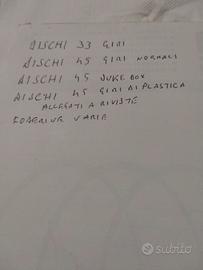 DISCHI 33 GIRI
DISCHI 45 GIRI NORMALI
DISCHI 45 JUKE BOX
DISCHI 45 GIRI DI PLASTICA
ALLEGATI A RIVISTE
VARIE
subito